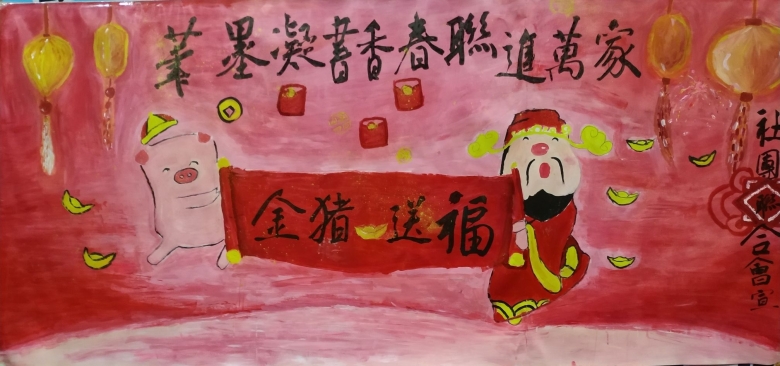 筆墨凝書香春聯進萬家
金豬送福
社團聯合會宣